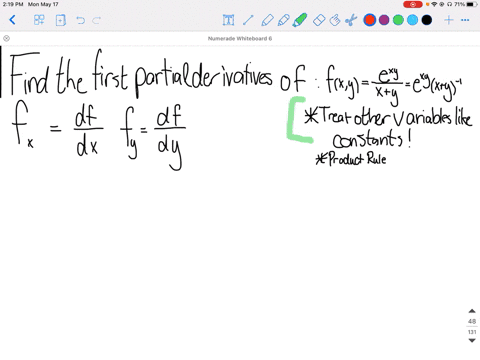 2:19 PM Mon May 17
71%
Numerade Whiteboard 6
Find the first partial derivatives of : f(x,y) = e^xy / x+y = e^xy (x+y)^-1
f_x = df/dx f_y = df/dy
*Treat other variables like
constants!
*Product Rule
48
131